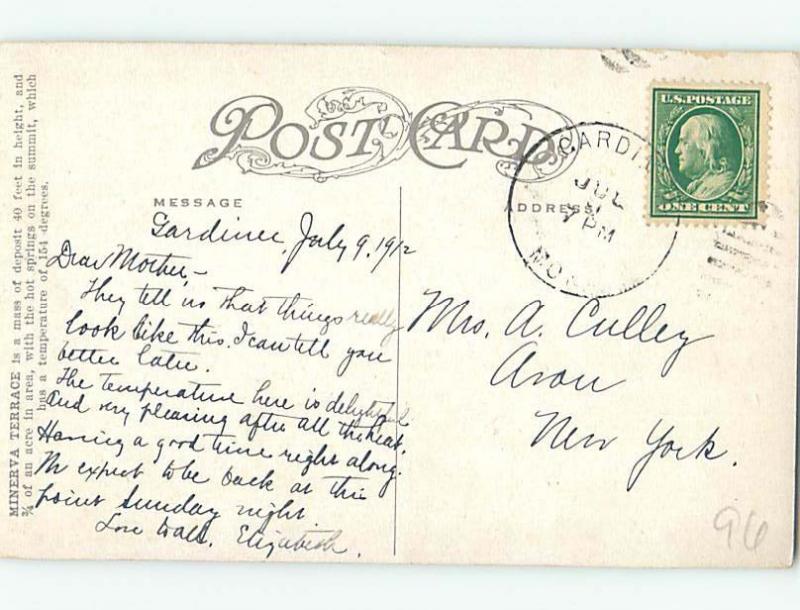 POST CARD
MESSAGE
ADDRESS
MINERVA TERRACE is a mass of deposit 40 feet in height, and
¾ of an acre in area, with the hot springs on the summit, which
has a temperature of 154 degrees.
Gardiner, July 9, 1912
Dear Mother,-
They tell us that things really
look like this. I can tell you
better later.
The temperature here is delightful
and very pleasing after all the heat.
Having a good time right along.
We expect to be back at this
point Sunday night
Love to all. Elizabeth.
Mrs. A. Culley
Avon
New York.
GARDIN
JUL
PM
MON
U.S. POSTAGE
ONE CENT
96